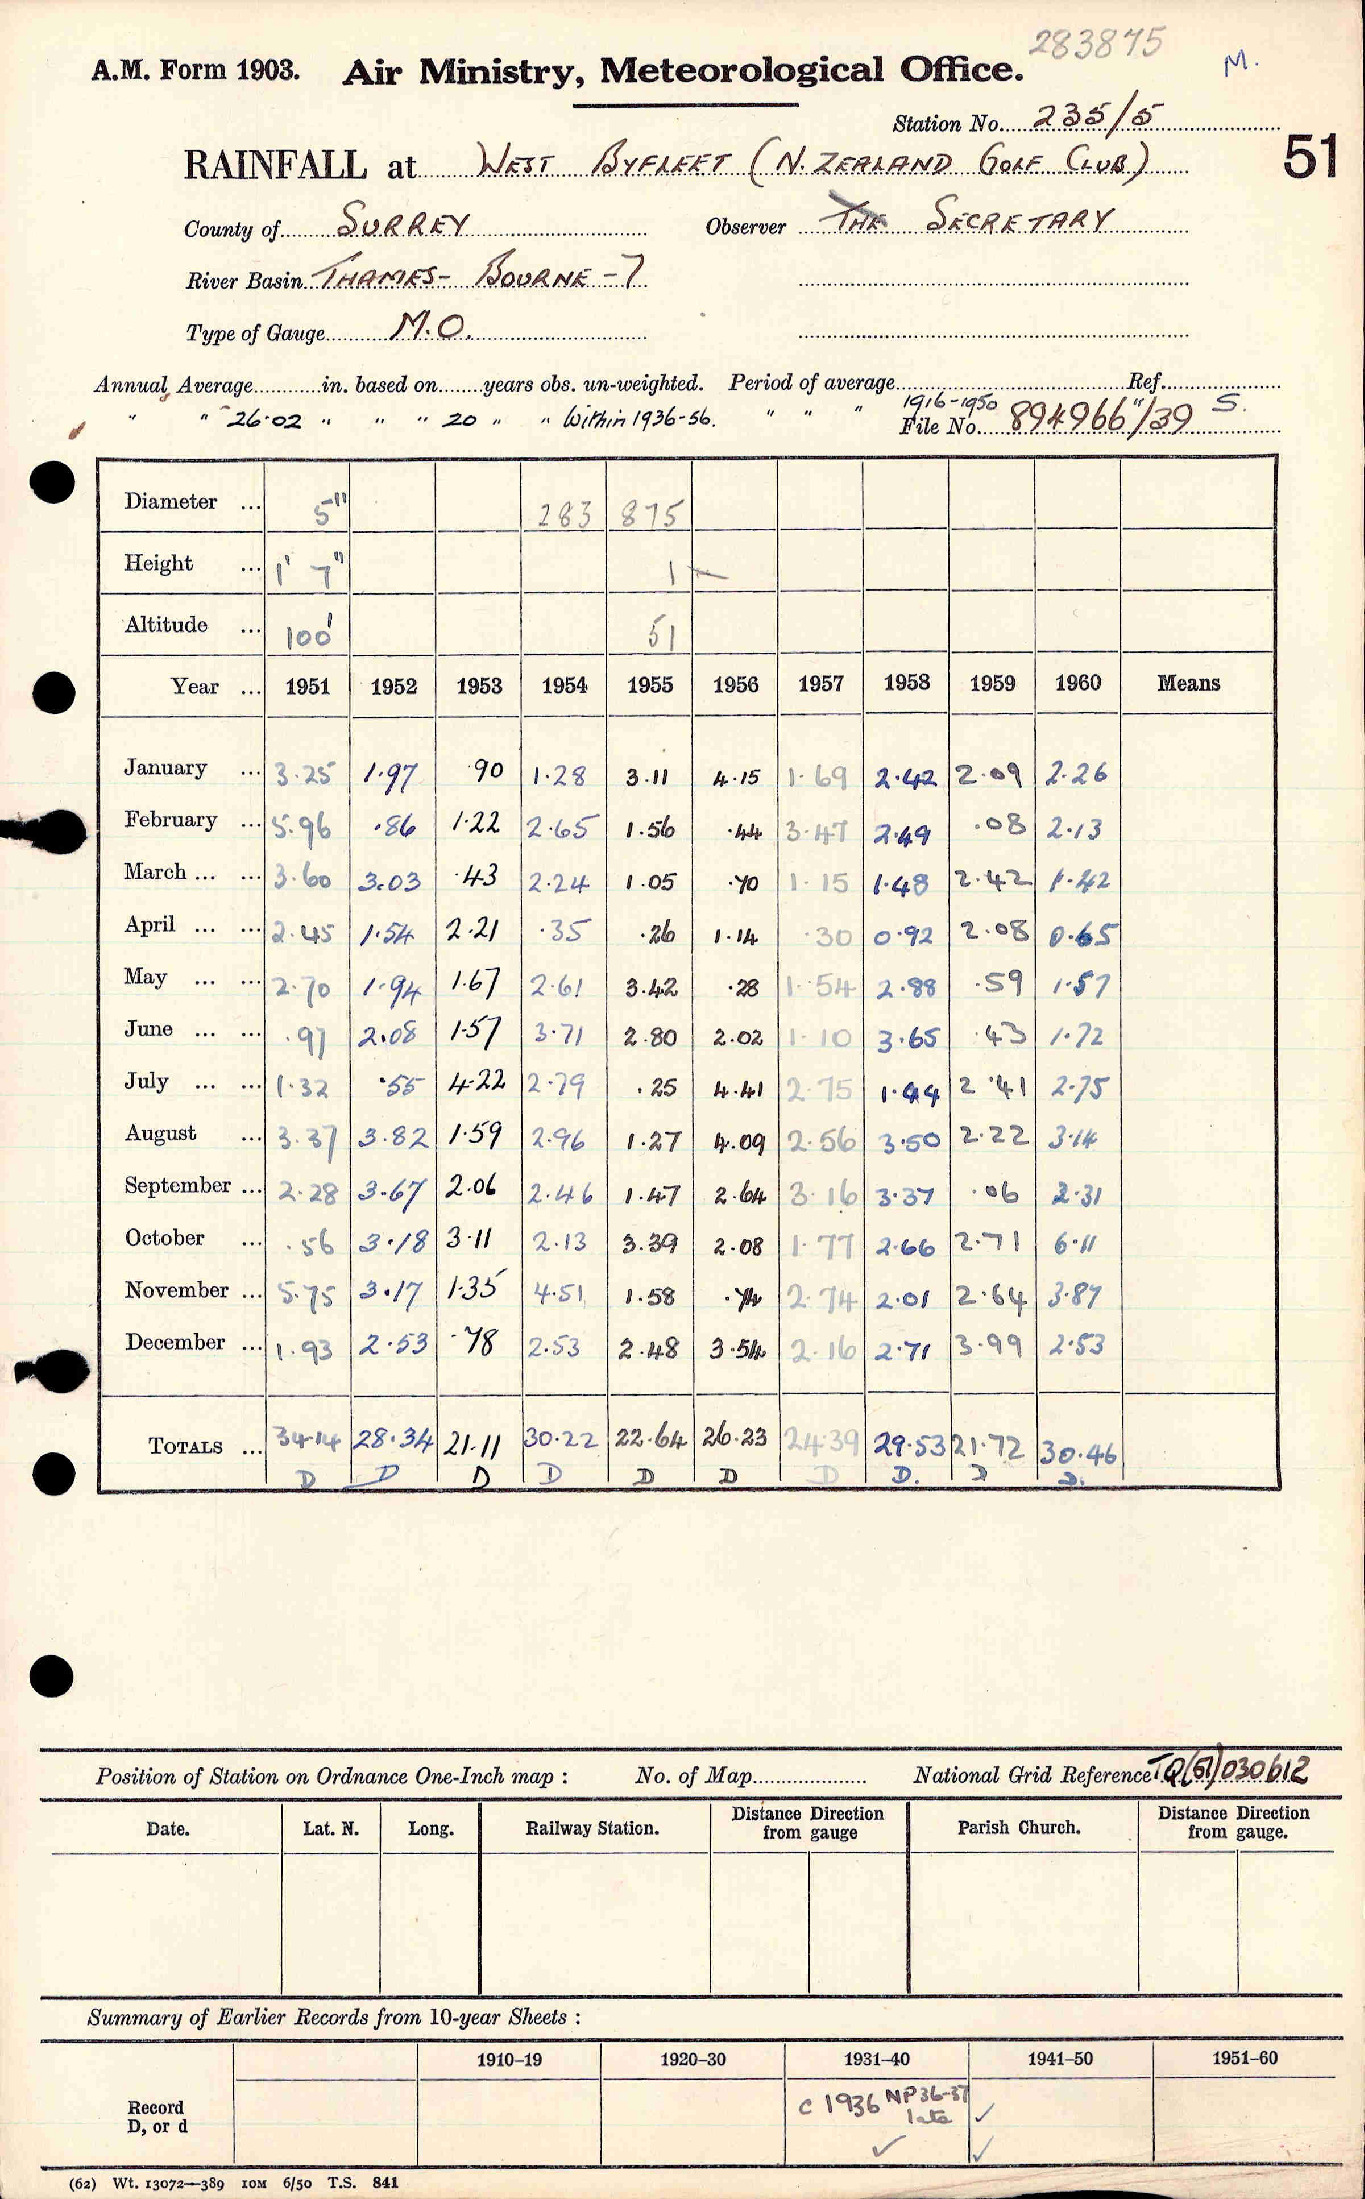 283875
M.
A.M. Form 1903. Air Ministry, Meteorological Office.
Station No. 235/5
51
RAINFALL at WEST BYFLEET (N. ZEALAND GOLF CLUB)
County of SURREY Observer THE SECRETARY
River Basin THAMES - BOURNE - 7
Type of Gauge M.O.
Annual Average in. based on years obs. un-weighted. Period of average Ref.
" " 26.02 " " " 20 " " Within 1936-56. " " " 1916-1950 " S.
File No. 894966/39
Diameter ... 5" 283 875
Height ... 1' 7" 1
Altitude ... 100' 51
Year ... 1951 1952 1953 1954 1955 1956 1957 1958 1959 1960 Means
January ... 3.25 1.97 .90 1.28 3.11 4.15 1.69 2.42 2.09 2.26
February ... 5.96 .86 1.22 2.65 1.56 .44 3.47 2.49 .08 2.13
March ... ... 3.60 3.03 .43 2.24 1.05 .70 1.15 1.48 2.42 1.42
April ... ... 2.45 1.54 2.21 .35 .26 1.14 .30 0.92 2.08 0.65
May ... ... 2.70 1.94 1.67 2.61 3.42 .28 1.54 2.88 .59 1.57
June ... ... .97 2.08 1.57 3.71 2.80 2.02 1.10 3.65 .43 1.72
July ... ... 1.32 .55 4.22 2.79 .25 4.41 2.75 1.44 2.41 2.75
August ... 3.37 3.82 1.59 2.96 1.27 4.09 2.56 3.50 2.22 3.14
September ... 2.28 3.67 2.06 2.46 1.47 2.64 3.16 3.37 .06 2.31
October ... .56 3.18 3.11 2.13 3.39 2.08 1.77 2.66 2.71 6.11
November ... 5.75 3.17 1.35 4.51 1.58 .74 2.74 2.01 2.64 3.87
December ... 1.93 2.53 .78 2.53 2.48 3.54 2.16 2.71 3.99 2.53
TOTALS ... 34.14 28.34 21.11 30.22 22.64 26.23 24.39 29.53 21.72 30.46
D D D D D D D D. D D.
Position of Station on Ordnance One-Inch map : No. of Map National Grid Reference TQ(51)030612
Date. Lat. N. Long. Railway Station. Distance Direction from gauge Parish Church. Distance Direction from gauge.
Summary of Earlier Records from 10-year Sheets :
1910–19 1920–30 1931–40 1941–50 1951–60
Record D, or d c 1936 NP36-37 late ✓
✓ ✓
(62) Wt. 13072—389 10M 6/50 T.S. 841